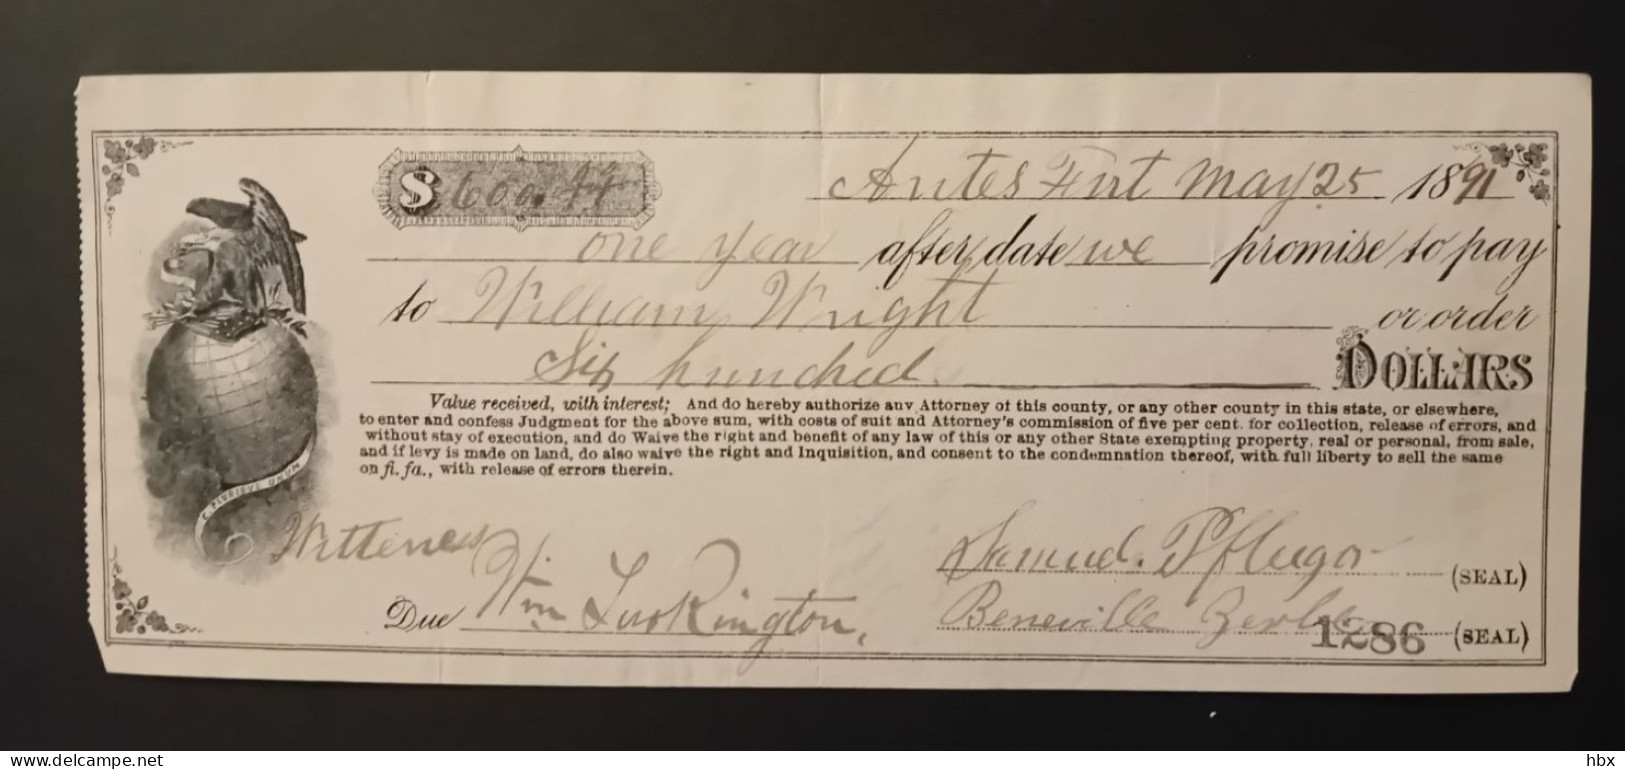 $ 600.
Antes Fort May 25 1891
one year after date we promise to pay
to William Wright or order
Six hundred DOLLARS
Value received, with interest; And do hereby authorize any Attorney of this county, or any other county in this state, or elsewhere,
to enter and confess Judgment for the above sum, with costs of suit and Attorney's commission of five per cent. for collection, release of errors, and
without stay of execution, and do Waive the right and benefit of any law of this or any other State exempting property, real or personal, from sale,
and if levy is made on land, do also waive the right and Inquisition, and consent to the condemnation thereof, with full liberty to sell the same
on fi. fa., with release of errors therein.
E PLURIBUS UNUM
Witteness
Samuel. (SEAL)
Due Wm
Beneville (SEAL)
1286
www.delcampe.net
hbx